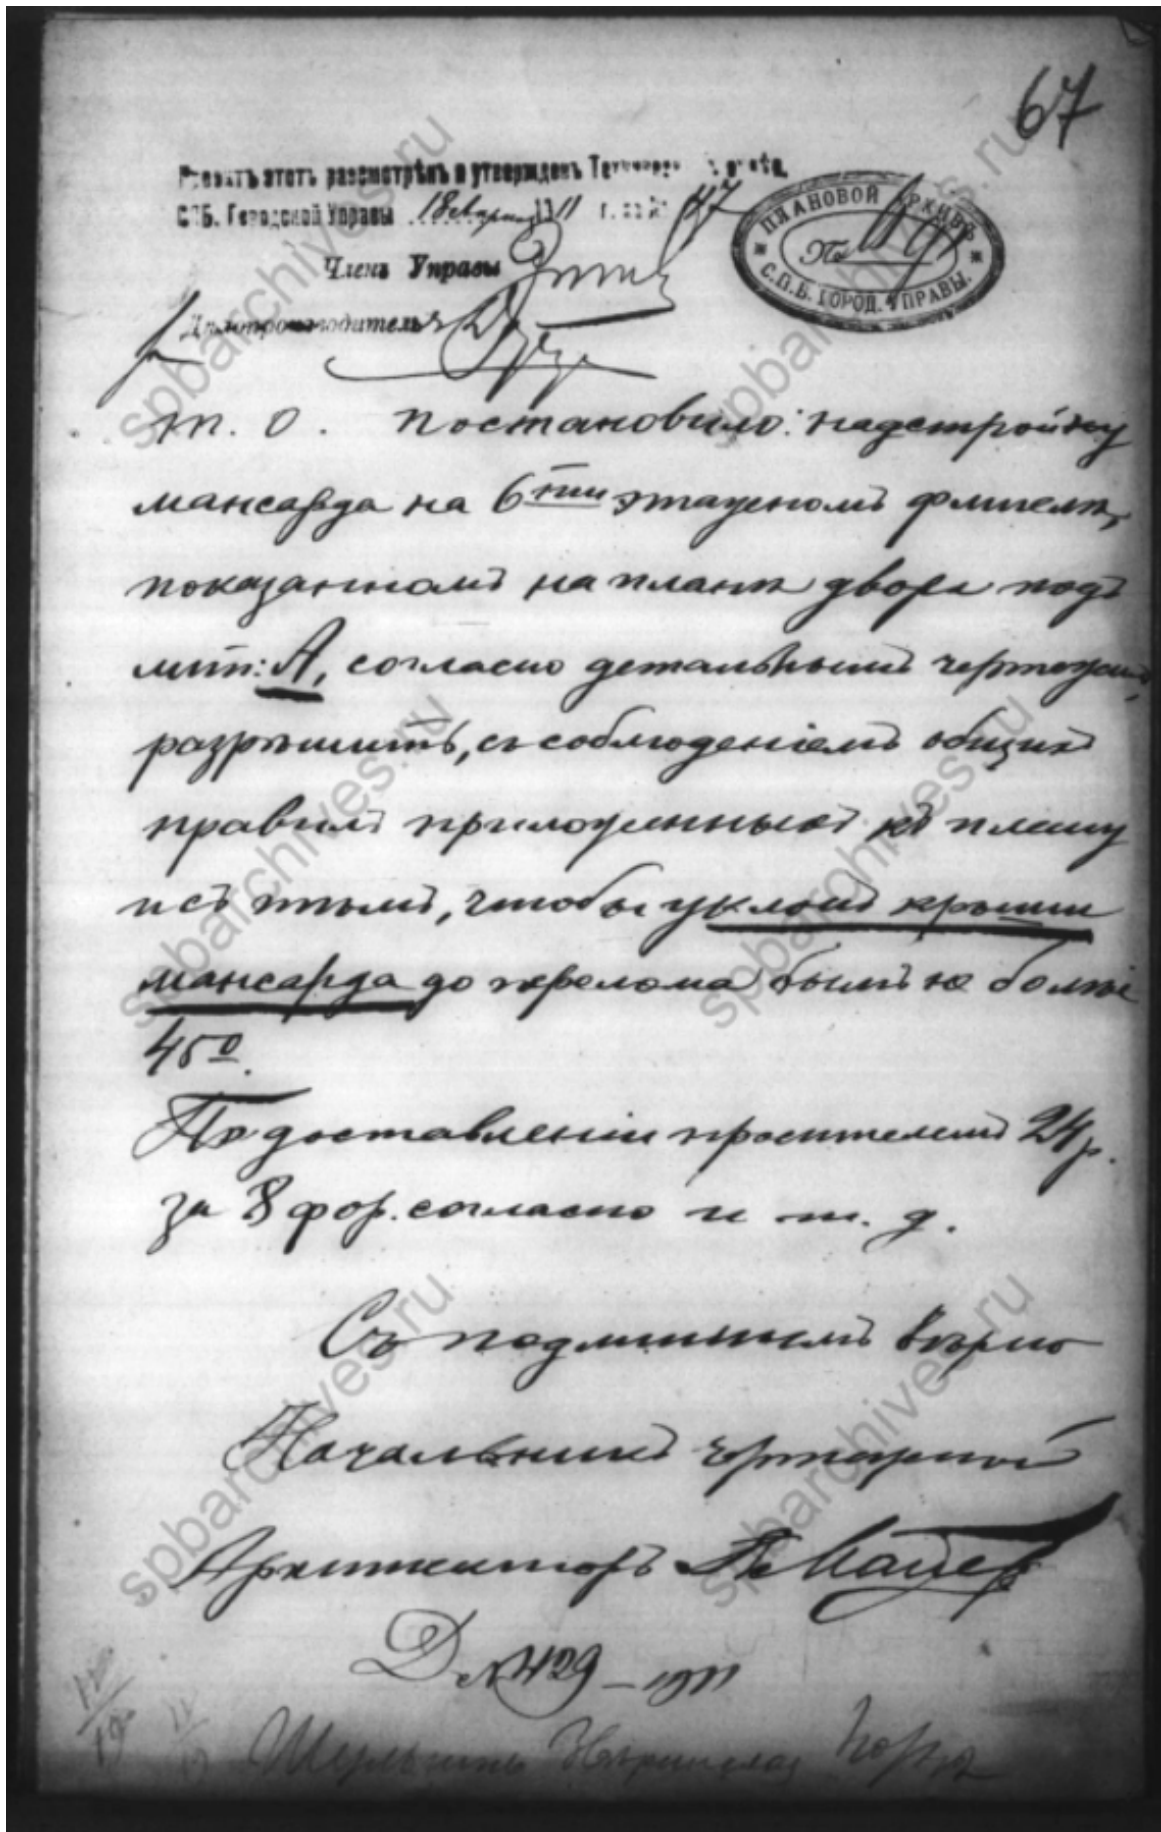 67
Проектъ этотъ разсмотрѣнъ и утвержденъ
СПБ. Городской Управы 1911 г. за № 47
Членъ Управы
Дѣлопроизводитель
ПЛАНОВОЙ АРХИВЪ
№
С.П.Б. ГОРОД. УПРАВЫ.
Т. О. постановило: надстройку
мансарда на 6тни этажномъ флигелѣ,
показанномъ на планѣ двора подъ
лит: А, согласно детальнымъ чертежамъ,
разрѣшить, съ соблюденіемъ общихъ
правилъ приложенныхъ къ плану
и съ тѣмъ, чтобы уклонъ крыши
мансарда до перелома былъ не болѣе
45º.
По доставленіи просителемъ 24 р.
за 8 фор. согласно и т. д.
Съ подлиннымъ вѣрно
Начальникъ чертежной
Архитекторъ
Д. № 429 – 1911
spbarchives.ru
spbarchives.ru
spbarchives.ru
spbarchives.ru
spbarchives.ru
spbarchives.ru